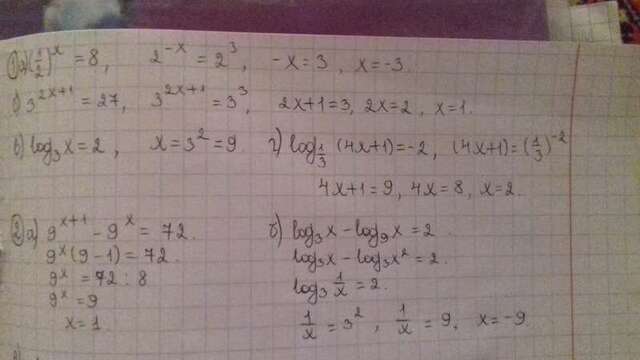 ① а) (1/2)^x = 8, 2^-x = 2^3, -x = 3, x = -3
б) 3^2x+1 = 27, 3^2x+1 = 3^3, 2x+1=3, 2x=2, x=1.
в) log₃x = 2, x = 3^2 = 9 г) log_1/3 (4x+1) = -2, (4x+1) = (1/3)^-2
4x+1=9, 4x=8, x=2.
② а) 9^x+1 - 9^x = 72.
9^x(9-1) = 72.
9^x = 72 : 8
9^x = 9
x = 1.
б) log₃x - log₉x = 2.
log₃x - log₃x^2 = 2.
log₃ 1/x = 2.
1/x = 3^2, 1/x = 9, x = -9